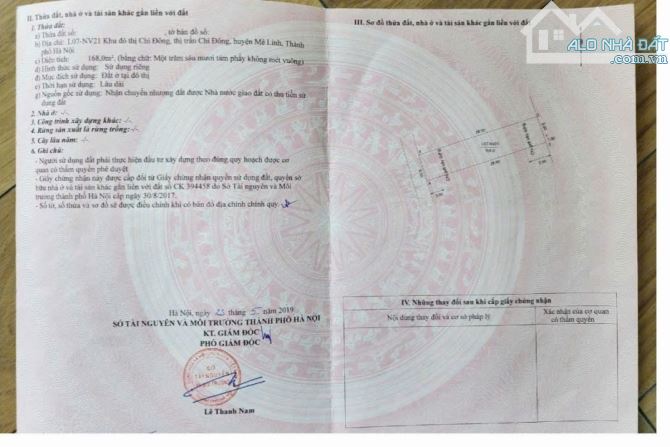 II. Thửa đất, nhà ở và tài sản khác gắn liền với đất
1. Thửa đất:
a) Thửa đất số: , tờ bản đồ số:
b) Địa chỉ: L07-NV21 Khu đô thị Chi Đông, thị trấn Chi Đông, huyện Mê Linh, Thành
phố Hà Nội
c) Diện tích: 168,0m², (bằng chữ: Một trăm sáu mươi tám phẩy không mét vuông)
d) Hình thức sử dụng: Sử dụng riêng
đ) Mục đích sử dụng: Đất ở tại đô thị
e) Thời hạn sử dụng: Lâu dài
g) Nguồn gốc sử dụng: Nhận chuyển nhượng đất được Nhà nước giao đất có thu tiền sử
dụng đất
2. Nhà ở: -/-
3. Công trình xây dựng khác: -/-
4. Rừng sản xuất là rừng trồng: -/-
5. Cây lâu năm: -/-
6. Ghi chú:
- Người sử dụng đất phải thực hiện đầu tư xây dựng theo đúng quy hoạch được cơ
quan có thẩm quyền phê duyệt
- Giấy chứng nhận này được cấp đổi từ Giấy chứng nhận quyền sử dụng đất, quyền sở
hữu nhà ở và tài sản khác gắn liền với đất số CK 394458 do Sở Tài nguyên và Môi
trường thành phố Hà Nội cấp ngày 30/8/2017.
- Số tờ, số thửa và sơ đồ sẽ được điều chỉnh khi có bản đồ địa chính chính quy.
Hà Nội, ngày 23 tháng 5 năm 2019
SỞ TÀI NGUYÊN VÀ MÔI TRƯỜNG THÀNH PHỐ HÀ NỘI
KT. GIÁM ĐỐC
PHÓ GIÁM ĐỐC
SỞ
TÀI NGUYÊN
Lê Thanh Nam
III. Sơ đồ thửa đất, nhà ở và tài sản khác gắn liền với đất
ALO NHÀ ĐẤT
IV. Những thay đổi sau khi cấp giấy chứng nhận
Nội dung thay đổi và cơ sở pháp lý
Xác nhận của cơ quan
có thẩm quyền